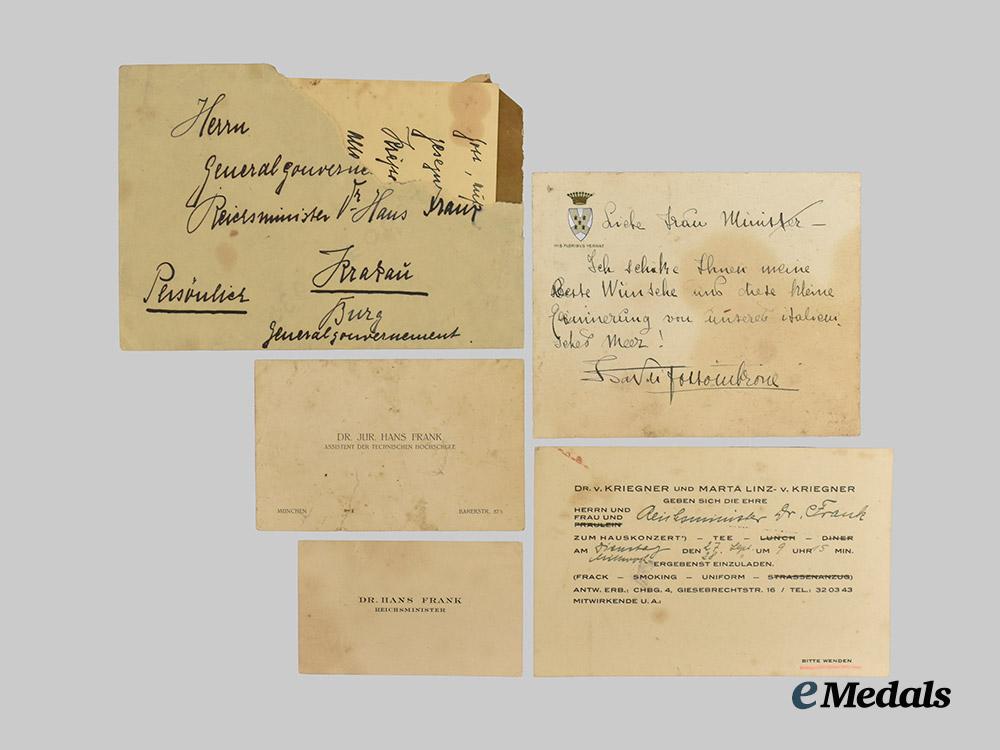 Herrn
Generalgouverne
Reichsminister Dr. Hans Frank
Krakau
Burg
Persönlich
Generalgouvernement.
HIS FLORIBUS VERNAT
Liebe Frau Minister –
Ich schicke Ihnen meine
Beste Wünsche und diese kleine
Erinnerung von unseren italieni
sches Meer!
DR. JUR. HANS FRANK
ASSISTENT DER TECHNISCHEN HOCHSCHULE
MÜNCHEN
DR. HANS FRANK
REICHSMINISTER
DR. V. KRIEGNER UND MARTA LINZ- V. KRIEGNER
GEBEN SICH DIE EHRE
HERRN UND
FRAU UND Reichsminister Dr. Frank
FRÄULEIN
ZUM HAUSKONZERT*) – TEE – LUNCH – DINER
AM Dienstag DEN 27. Sept. UM 9 UHR 15 MIN.
Mittwoch 28.
ERGEBENST EINZULADEN.
(FRACK – SMOKING – UNIFORM – STRASSENANZUG)
ANTW. ERB.: CHBG. 4, GIESEBRECHTSTR. 16 / TEL.: 32 03 43
MITWIRKENDE U. A.:
BITTE WENDEN
eMedals